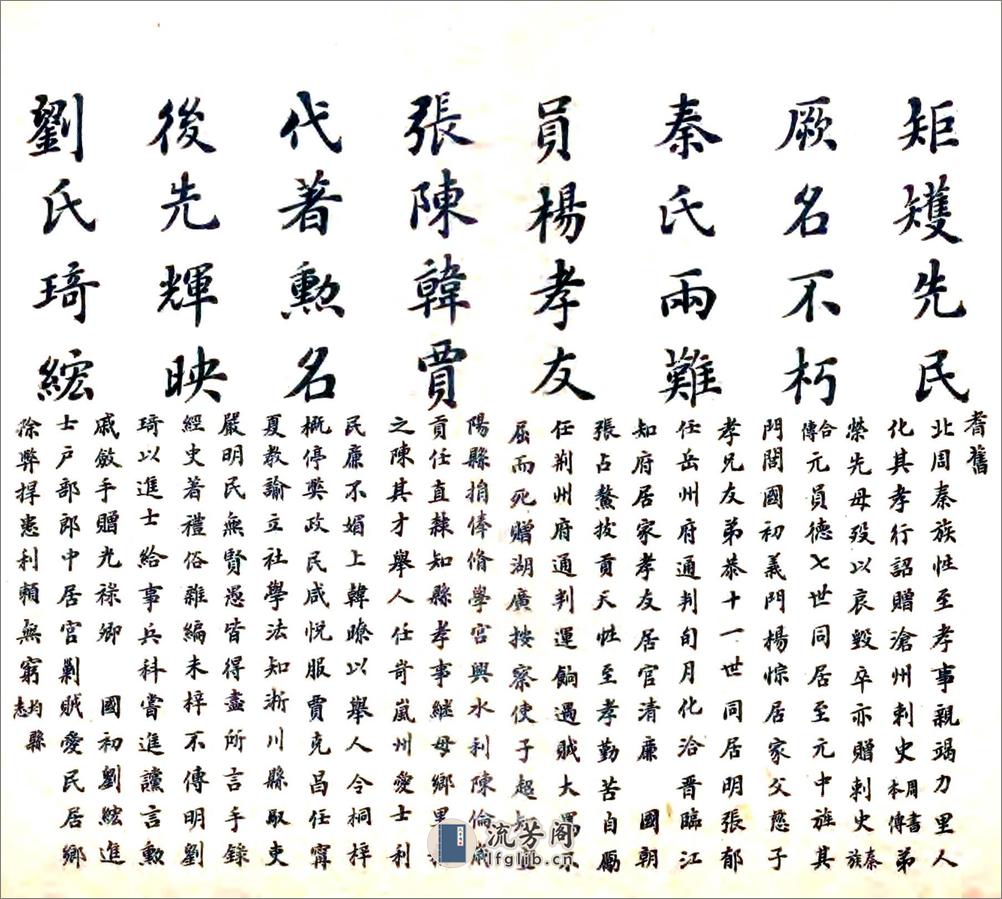 矩矱先民
厥名不朽
秦氏兩難
員楊孝友
張陳韓賈
代著勲名
後先輝映
劉氏琦綋
耆舊
北周秦族性至孝事親竭力里人
化其孝行詔贈滄州刺史周書本傳弟
榮先母歿以哀毀卒亦贈刺史秦族
合傳元員德七世同居至元中旌其
門閭國初義門楊悰居家父慈子
孝兄友弟恭十一世同居明張郁
任岳州府通判旬月化洽晋臨江
知府居家孝友居官清廉 國朝
張占鰲拔貢天性至孝勤苦自勵
任荆州府通判運餉遇賊大罵不
屈而死贈湖廣按察使子超知
陽縣捐俸脩學宮興水利陳倫歲
貢任直隸知縣孝事継母鄉里
之陳其才舉人任岢嵐州愛士利
民廉不媚上韓瞭以舉人令桐梓
槪停獘政民咸悅服賈克昌任甯
夏教諭立社學法知淅川縣馭吏
嚴明民無賢憑皆得盡所言手錄
經史著禮俗雜編未梓不傳明劉
琦以進士 給事兵科嘗進讜言勲
戚斂手贈光祿卿 國初劉綋進
士戶部郎中居官剿賊愛民居鄉
除弊捍患利賴無窮均縣志
流芳阁
lfglib.cn